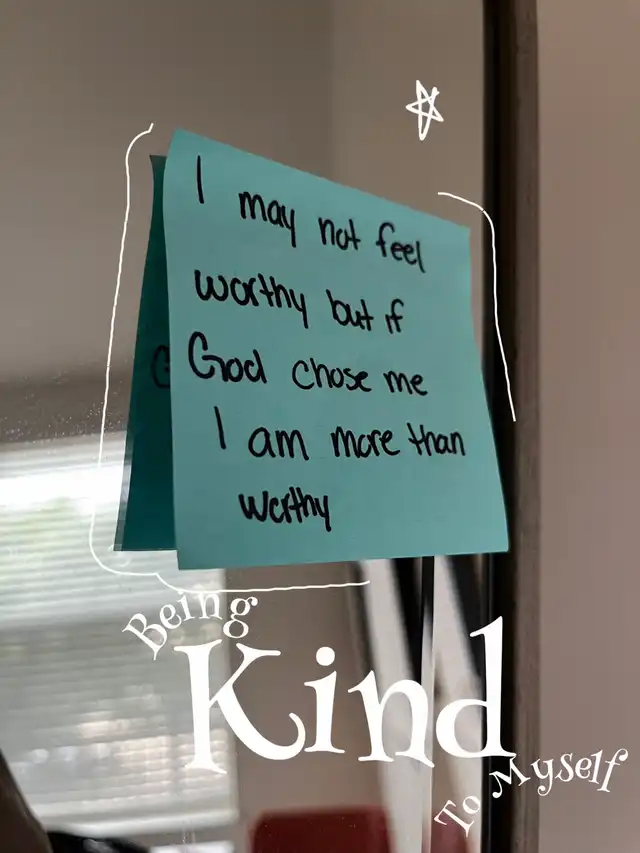 I may not feel
worthy but if
God chose me
I am more than
worthy
Being
Kind
To Myself